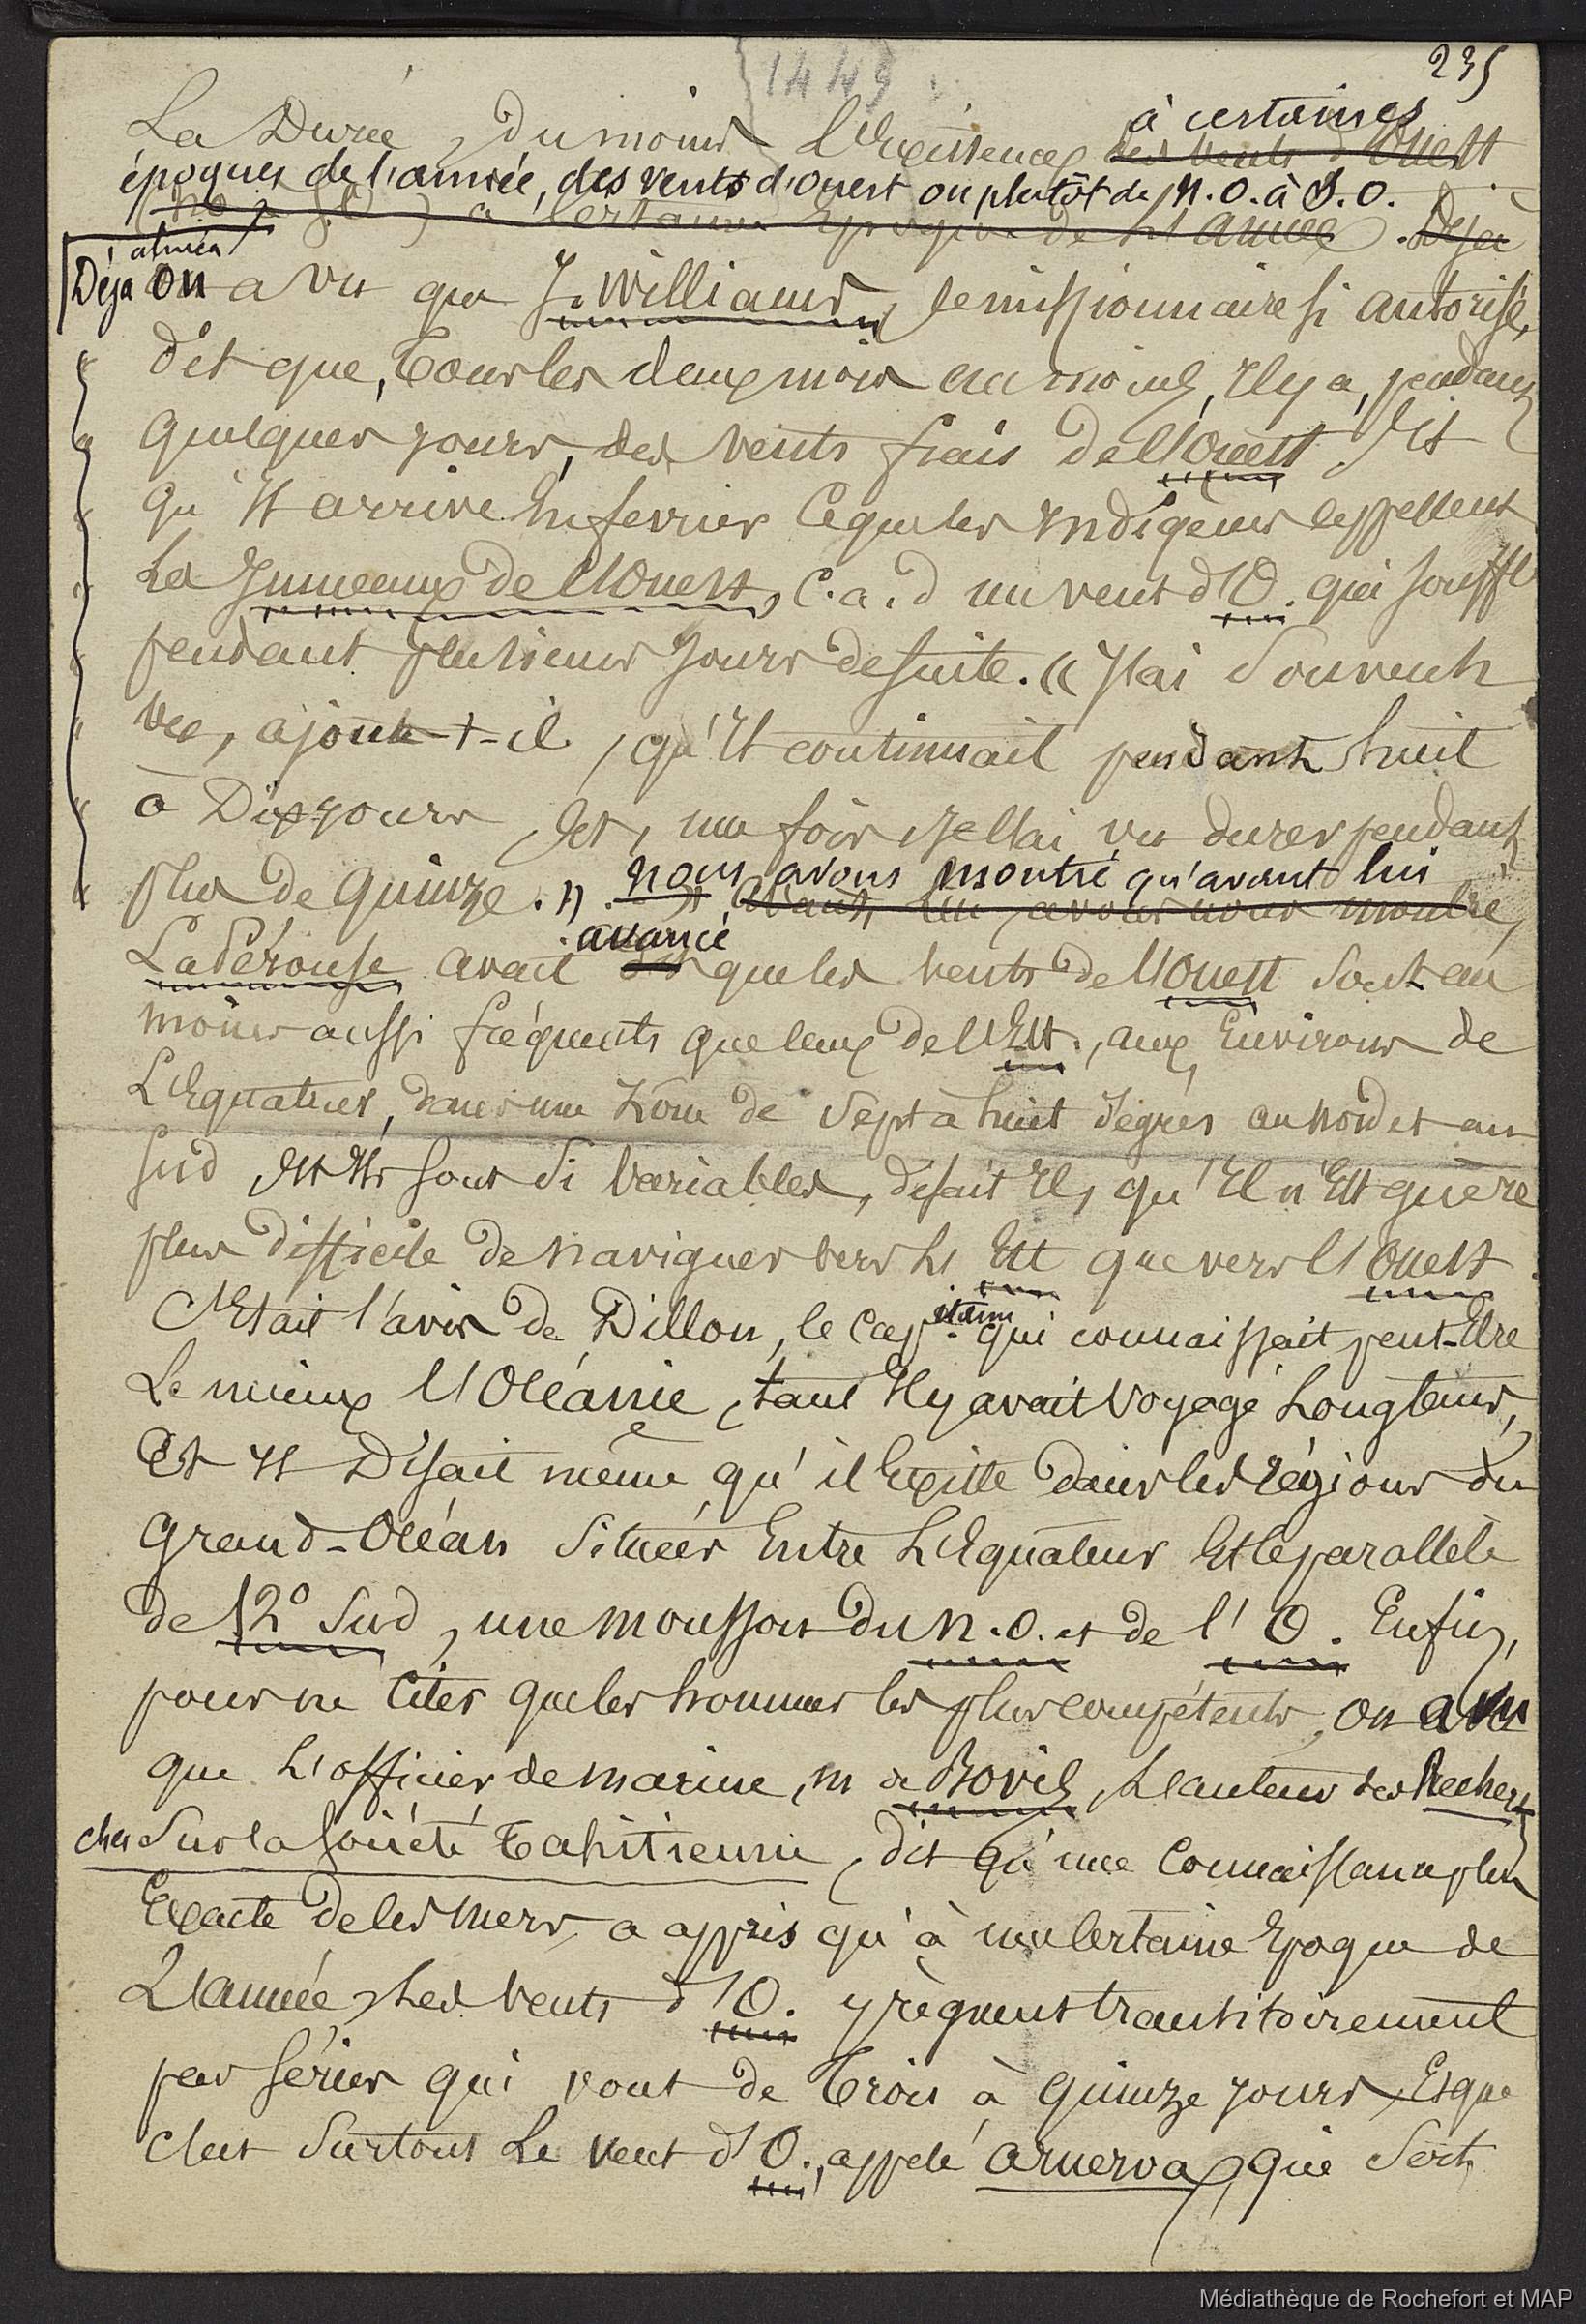 1449
235
La Durée, du moins l'Existence, à certaines
des vents d'Ouest
époques de l'année, des vents d'Ouest ou plutôt de N.O. à S.O.
à certaines Epoques de l'année. Déjà
alinéa
Déjà on a vu que J. Williams, le missionnaire si autorisé,
dit que, tous les deux mois au moins, Il y a, pendant
quelques jours, des vents frais de l'Ouest, Et
qu'Il arrive En fevrier ce que les Indigènes appellent
Les Jumeaux de l'Ouest, c.a.d un vent d'O. qui souffle
pendant plusieurs Jours de suite. « J'ai souvent
vu, ajoute-t-il, qu'Il continuait pendant huit
à Dix jours, Et, une fois, Je l'ai vu durer pendant
plus de quinze. » nous avons montré qu'avant lui
avant lui, avons nous montré,
avancé
LaPérouse avait dit que les vents de l'Ouest sont au
moins aussi fréquents que ceux de l'Est, aux Environs de
L'Equateur, dans une Zone de sept à huit dégrés au nord et au
sud Et Ils sont si variables, disait Il, qu'Il n'Est guère
plus difficile de naviguer vers l'Est que vers l'Ouest.
C'Etait l'avis de Dillon, le capitaine qui connaissait peut-Etre
Le mieux l'Océanie, tant Il y avait voyagé Longtems,
Et Il Disait même qu'il Existe dans les régions du
Grand-Océan situées Entre L'Equateur Et le parallèle
de 12° Sud, une mousson du N.O. et de l'O. Enfin,
pour ne citer que les hommes les plus compétents, on a vu
que L'officier de marine, m de Bovis, L'auteur des Recher-
ches Sur la Société Tahitienne, dit qu'une connaissance plus
Exacte de ces mers, a appris qu'à une certaine Epoque de
L'année, Les vents d'O. y règnent transitoirement
par séries qui vont de trois à quinze jours, Et que
c'est surtout Le vent d'O., appelé arueroa, qui sert
Médiathèque de Rochefort et MAP